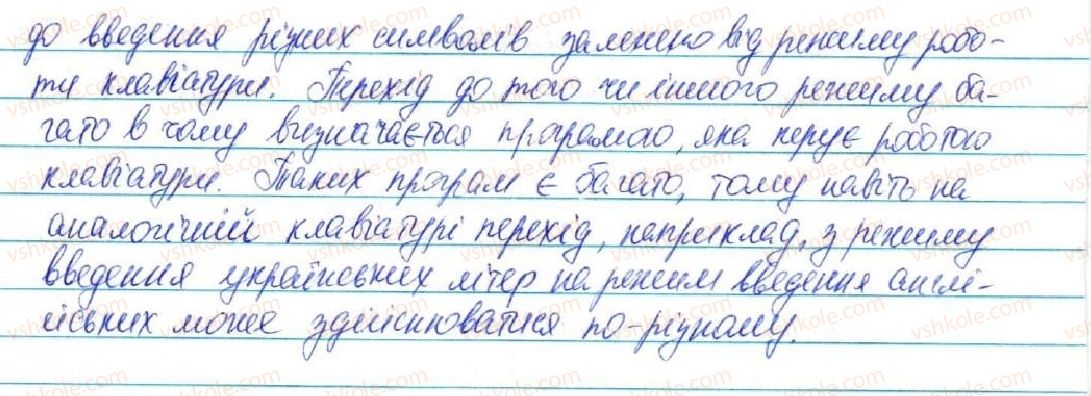 до введення різних символів залежно від режиму робо-
ти клавіатури. Перехід до того чи іншого режиму ба-
гато в чому визначається програмою, яка керує роботою
клавіатури. Таких програм є багато, тому навіть на
аналогічній клавіатурі перехід, наприклад, з режиму
введення українських літер на режим введення англі-
йських може здійснюватися по-різному.